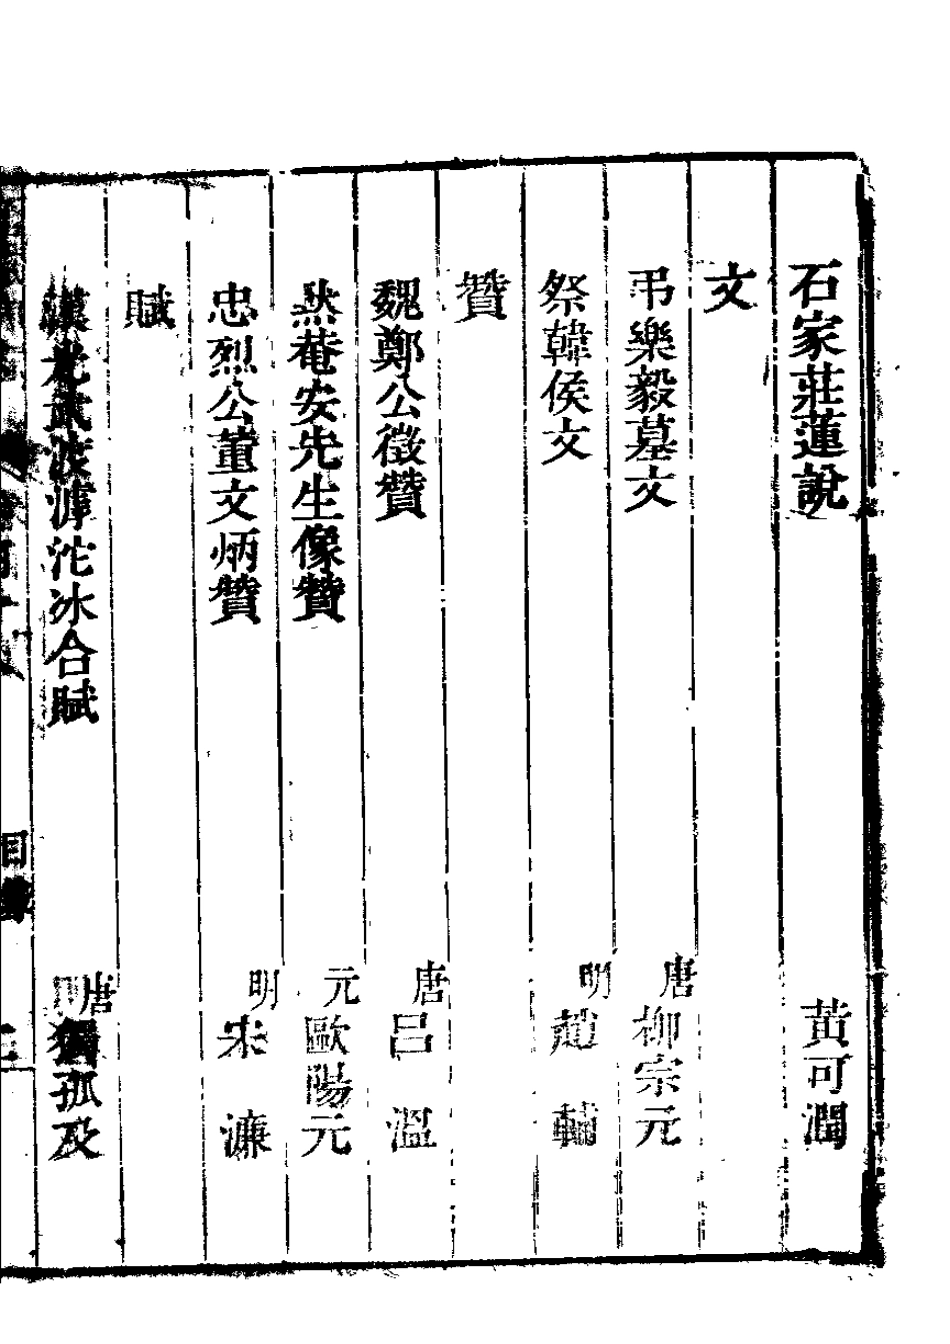 石家莊蓮說 黃可潤
文
弔樂毅墓文 唐柳宗元
祭韓侯文 明趙輔
贊
魏鄭公徵贊 唐呂溫
菴安先生像贊 元歐陽元
忠烈公董文炳贊 明宋濂
賦
漢光武渡滹沱冰合賦 唐獨孤及
目錄